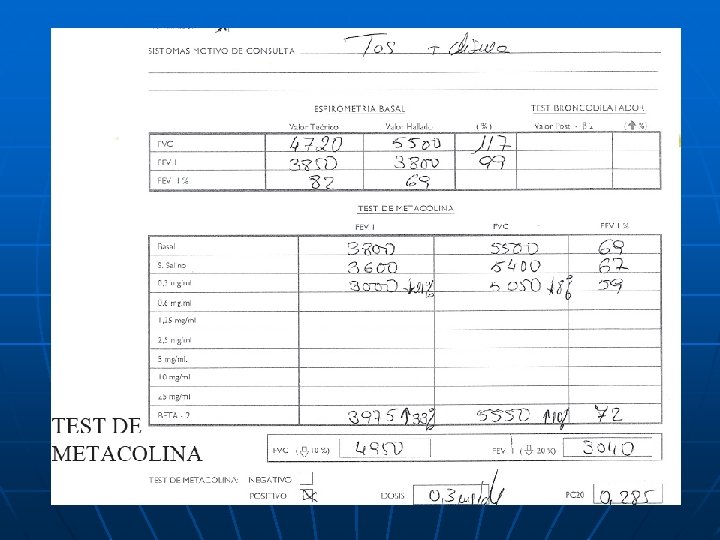 SISTOMAS MOTIVO DE CONSULTA Tos + disnea
ESPIROMETRIA BASAL TEST BRONCODILATADOR
Valor Teórico Valor Hallado (%) Valor Post - β2 (⇧ %)
FVC 4720 5500 117
FEV 1 3850 3800 99
FEV 1 % 82 69
TEST DE METACOLINA
FEV 1 FVC FEV 1 %
Basal 3800 5500 69
S. Salino 3600 5400 67
0,3 mg/ml 3000 ↓21% 5050 ↓8% 59
0.6 mg/ml
1,25 mg/ml
2,5 mg/ml.
5 mg/ml.
10 mg/ml.
25 mg/ml
BETA - 2 3975 ↑33% 5550 ↑10% 72
TEST DE
METACOLINA
FVC (⇩ 10 %) 4950 FEV 1 (⇩ 20 %) 3040
TEST DE METACOLINA: NEGATIVO
POSITIVO X DOSIS 0,3 mg/ml PC20 0,285